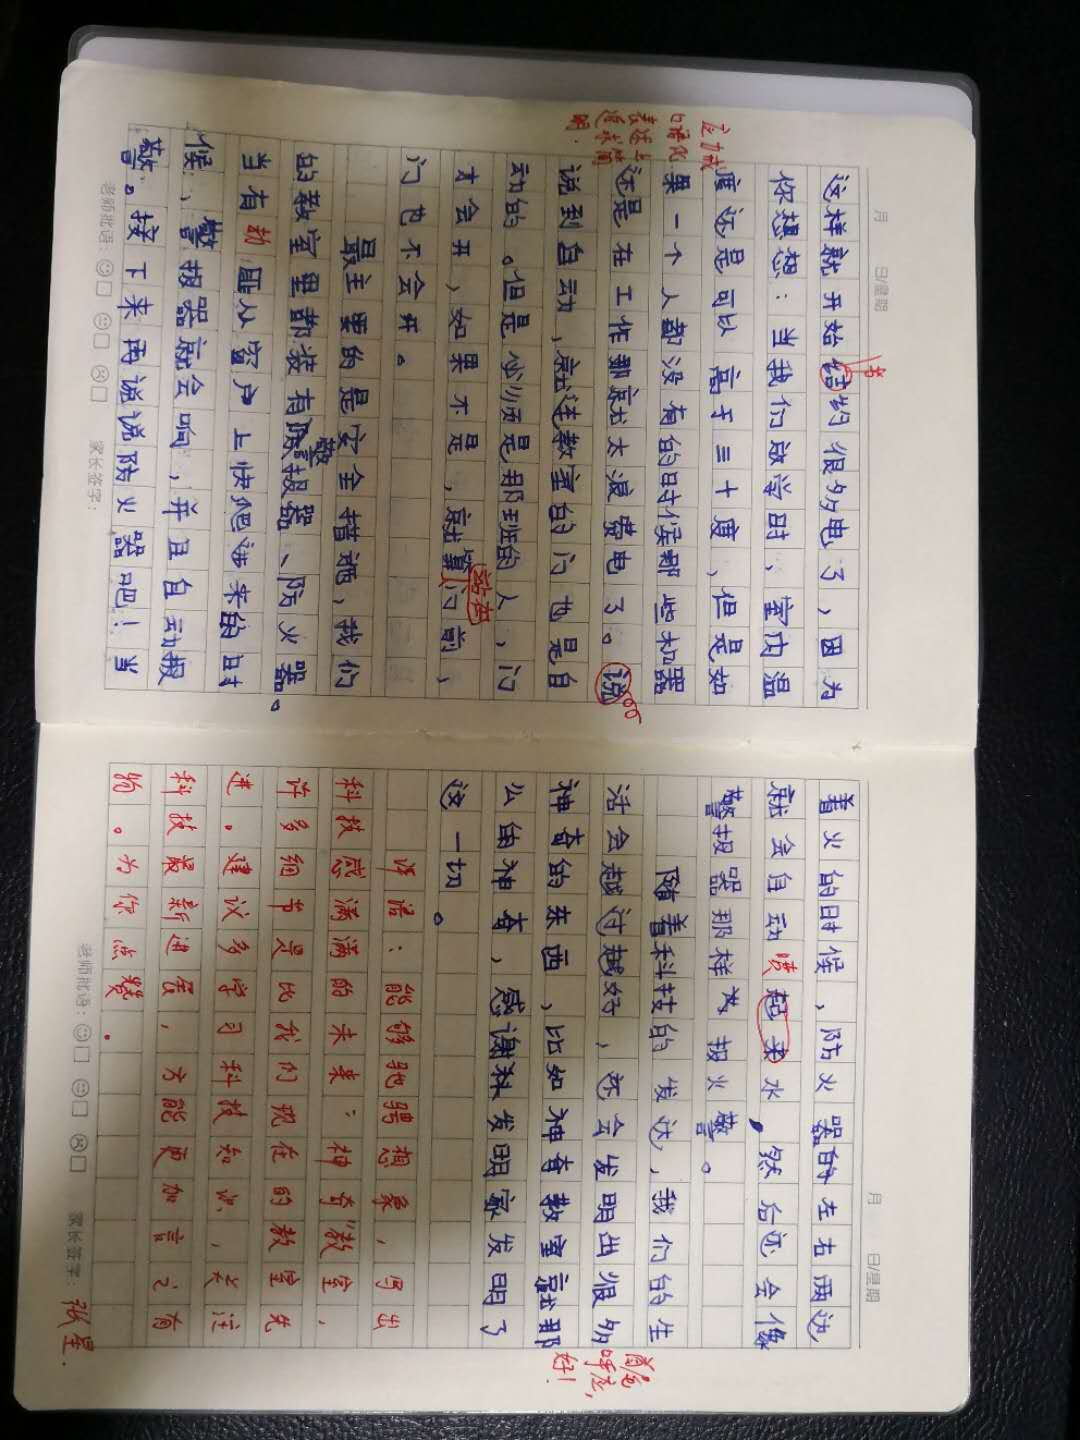 月 日/星期
这样就开始结约很多电了,因为
节
你想想:当我们放学时,室内温
度还是可以高于三十度,但是如
果一个人都没有的时候那些机器
还是在工作那就太浪费电了。说
应力戒
口语化
表述与
追求简
明.
说到自动,就连教室的门也是自
动的。但是必须是那班的人,门
才会开,如果不是,就算门前,
站在
门也不会开。
最主要的是安全措施,我们
的教室里都装有警报器、防火器。
当有劫匪从窗户上快爬进来的时
候,警报器就会响,并且自动报
警。接下来再说说防火器吧!当
老师批语: 家长签字:
月 日/星期
着火的时候,防火器的左右两边
就会自动喷起来水,然后还会像
警报器那样为报火警。
随着科技的发达,我们的生
活会越过越好,还会发明出很多
神奇的东西,比如神奇教室就那
么的神奇,感谢科发明家发明了
这一切。
首尾
呼应,
好!
评语:能够驰骋想象,写出
科技感满满的未来“神奇”教室,
许多细节是比我们现在的教室先
进。建议多学习科技知识,关注
科技最新进展,方能更加言之有
物。为你点赞.
老师批语: 家长签字: 张星.